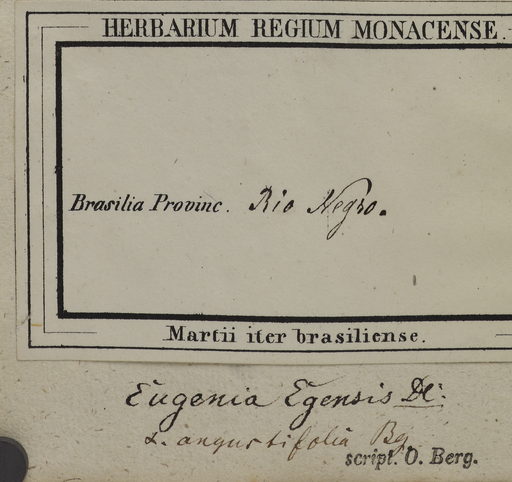 HERBARIUM REGIUM MONACENSE.
Brasilia Provinc. Rio Negro.
Martii iter brasiliense.
Eugenia Egensis DC:
α. angustifolia Bg.
script. O. Berg.